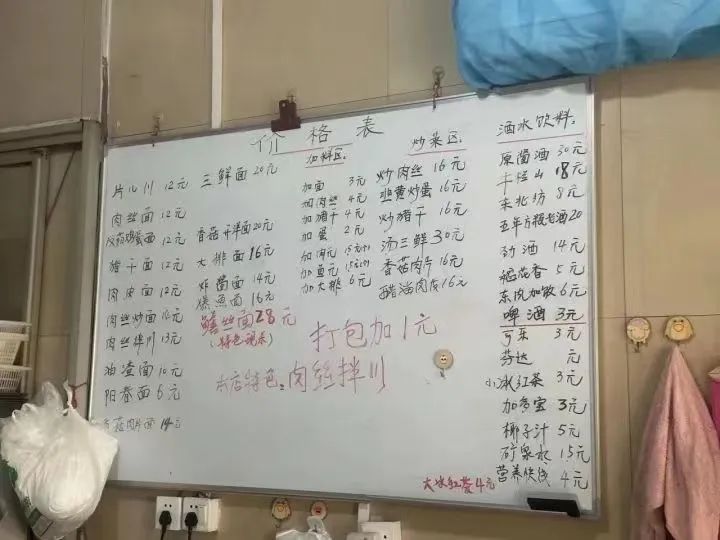 价格表
片儿川 12元
肉丝面 12元
12元
猪干面 12元
肉皮面 12元
肉丝炒面
肉丝拌川 13元
油渣面 10元
阳春面 6元
菇肉片面 14元
三鲜面 20元
香菇开洋面 20元
大排面 16元
炸酱面 14元
爆鱼面 16元
鳝丝面 28元
(特色现杀)
加料区:
加面 3元
加肉丝 4元
加猪干 4元
加蛋 2元
加肉元
加鱼元
加大排 6元
炒菜区:
炒肉丝 16元
韭黄炒蛋 16元
炒猪干 16元
汤三鲜 30元
香菇肉片 16元
醋溜肉皮 16元
打包加1元
本店特色:肉丝拌川
酒水饮料:
30元
18元
8元
五年方瓶老酒20
劲酒 14元
稻花香 5元
6元
啤酒 3元
可乐 3元
芬达 元
小冰红茶 3元
加多宝 3元
椰子汁 5元
矿泉水 1.5元
营养快线 4元
大冰红茶 4元